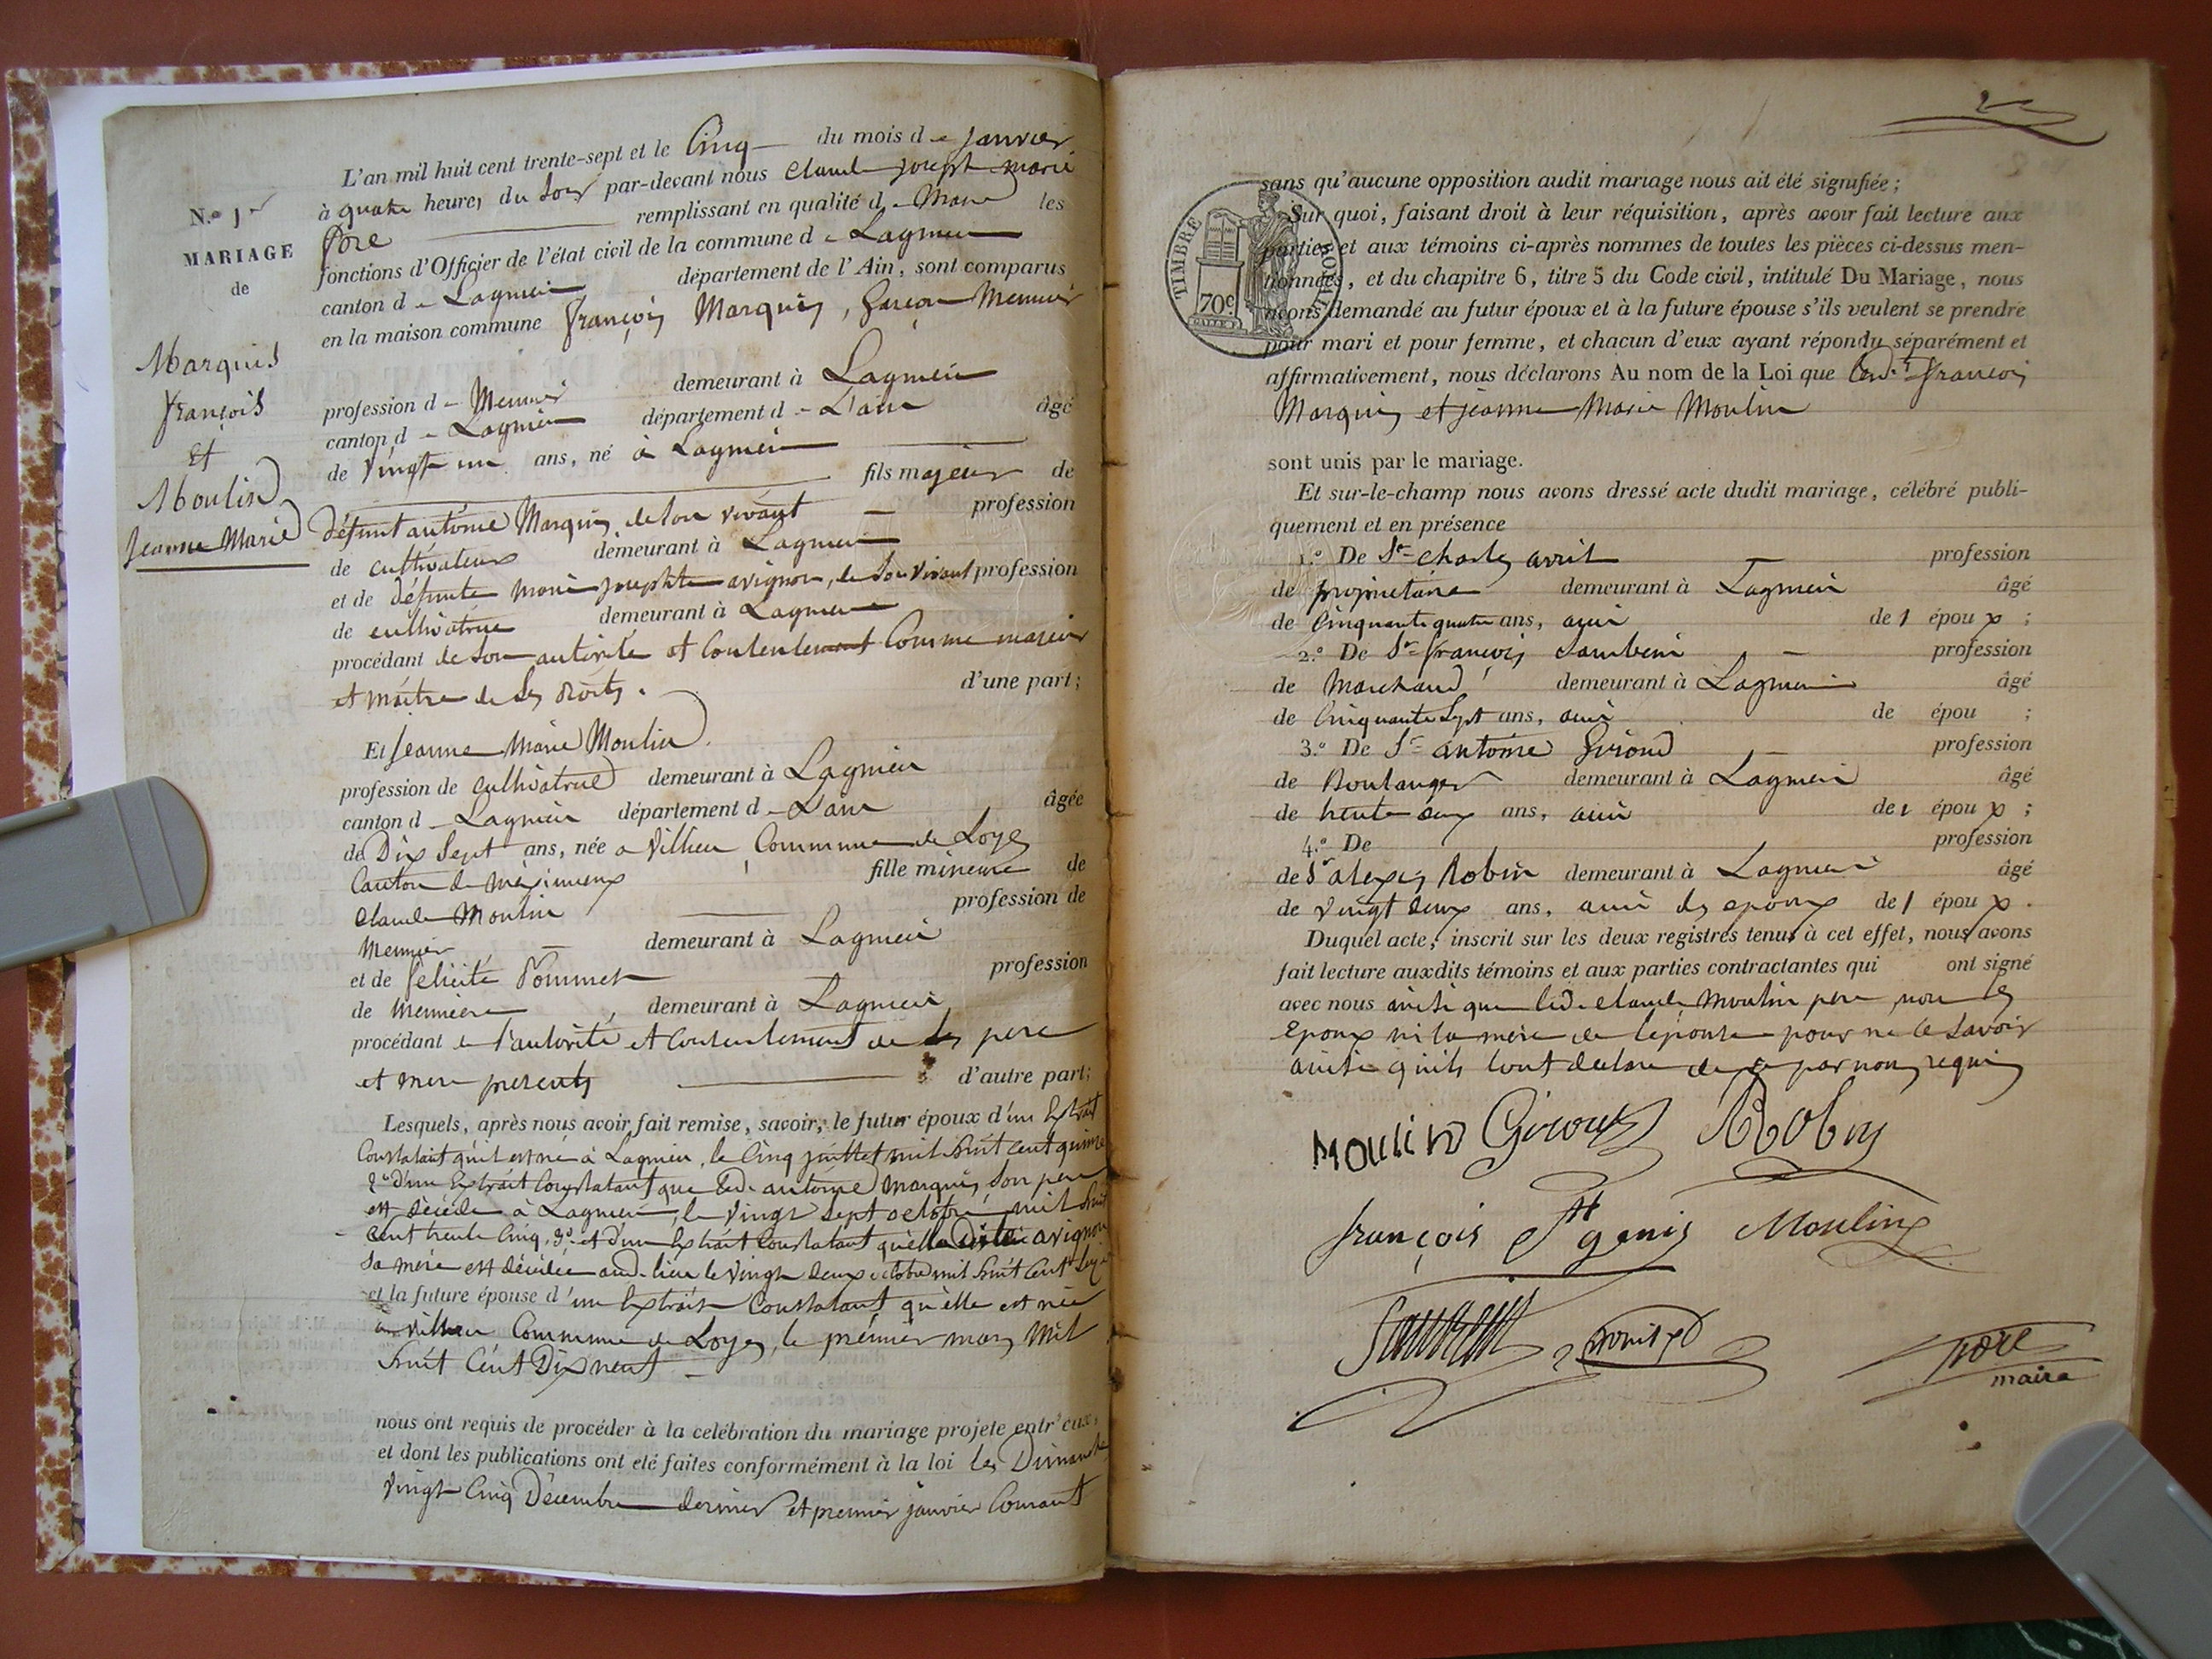 N.o 1er
MARIAGE
de
Marquis
françois
Et
Moulin
Jeanne Marie
L'an mil huit cent trente-sept et le Cinq du mois de janvier
à quatre heures du Soir par-devant nous Claude joseph marie
Pore remplissant en qualité de Maire les
fonctions d'Officier de l'état civil de la commune de Lagnieu
canton de Lagnieu département de l'Ain, sont comparus
en la maison commune françois Marquis, Garçon Meunier
profession de Meunier demeurant à Lagnieu
canton de Lagnieu département de L'ain âgé
de Vingt un ans, né à Lagnieu
fils majeur de
défunt antoine Marquis, de son vivant profession
de cultivateur demeurant à Lagnieu
et de défunte marie josephte avignon, de son vivant profession
de cultivatrice demeurant à Lagnieu
procédant de son autorité et Consentement Comme majeur
et maitre de ses droits. d'une part;
Et Jeanne Marie Moulin
profession de cultivatrice demeurant à Lagnieu
canton de Lagnieu département de L'ain âgée
de Dix Sept ans, née a Villieu Commune de Loyes
Canton de méximieux fille mineure de
Claude Moulin profession de
Meunier demeurant à Lagnieu
et de felicité Pommet profession
de Meunière demeurant à Lagnieu
procédant de l'autorité et Consentement de ses pere
et mere presents d'autre part;
Lesquels, après nous avoir fait remise, savoir, le futur époux d'un Extrait
Constatant qu'il est né à Lagnieu, le Cinq juillet mil huit cent quinze
2o d'un Extrait Constatant que led. antoine marquis, son pere
est décédé à Lagnieu, le vingt sept octobre mil huit
cent trente Cinq, 3o et d'un Extrait Constatant qu'elladite avignon
sa mère est décédée aud. lieu le vingt deux octobre mil huit Cent
et la future épouse d'un Extrait Constatant qu'elle est née
a Villieu Commune de Loyes, le prémier mars mil
huit Cent Dix neuf
nous ont requis de procéder à la celébration du mariage projete entr'eux,
et dont les publications ont eté faites conformément à la loi les Dimanche
Vingt Cinq Décembre dernier et premier janvier Courant
2
TIMBRE ROYAL
70c
sans qu'aucune opposition audit mariage nous ait été signifiée;
Sur quoi, faisant droit à leur réquisition, après avoir fait lecture aux
parties et aux témoins ci-après nommes de toutes les pièces ci-dessus men-
tionnées, et du chapitre 6, titre 5 du Code civil, intitulé Du Mariage, nous
avons demandé au futur époux et à la future épouse s'ils veulent se prendre
pour mari et pour femme, et chacun d'eux ayant répondu séparément et
affirmativement, nous déclarons Au nom de la Loi que françois
Marquis et jeanne Marie Moulin
sont unis par le mariage.
Et sur-le-champ nous avons dressé acte dudit mariage, célébré publi-
quement et en présence
1.o De Sr Charles avril profession
de propriétaire demeurant à Lagnieu âgé
de Cinquante quatre ans, ami de l époux;
2.o De Sr françois profession
de Marchand demeurant à Lagnieu âgé
de Cinquante Sept ans, ami de épou;
3.o De Sr antoine Giroud profession
de Boulanger demeurant à Lagnieu âgé
de trente deux ans, ami de l époux;
4.o De profession
de Sr alexis Robin demeurant à Lagnieu âgé
de Vingt deux ans, ami des epoux de l époux.
Duquel acte, inscrit sur les deux registres tenus à cet effet, nous avons
fait lecture auxdits témoins et aux parties contractantes qui ont signé
avec nous ainsi que led. Claude Moulin pere, non les
Epoux ni la mère de l'épouse pour ne le savoir
ainsi qu'ils l'ont déclaré de ce par nous requis
MOULIN Giroud Robin
françois St genis Moulin
pore
maire